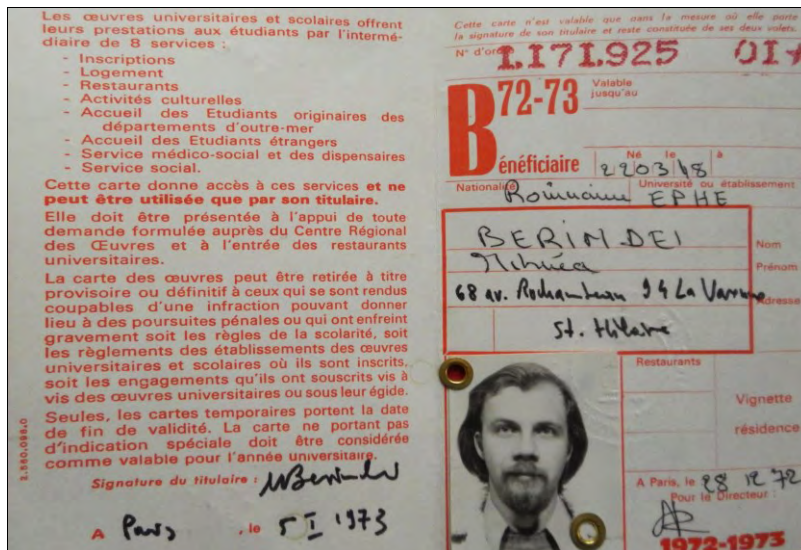 Les œuvres universitaires et scolaires offrent
leurs prestations aux étudiants par l'intermé-
diaire de 8 services :
- Inscriptions
- Logement
- Restaurants
- Activités culturelles
- Accueil des Etudiants originaires des
départements d'outre-mer
- Accueil des Etudiants étrangers
- Service médico-social et des dispensaires
- Service social.
Cette carte donne accès à ces services et ne
peut être utilisée que par son titulaire.
Elle doit être présentée à l'appui de toute
demande formulée auprès du Centre Régional
des Œuvres et à l'entrée des restaurants
universitaires.
La carte des œuvres peut être retirée à titre
provisoire ou définitif à ceux qui se sont rendus
coupables d'une infraction pouvant donner
lieu à des poursuites pénales ou qui ont enfreint
gravement soit les règles de la scolarité, soit
les règlements des établissements des œuvres
universitaires et scolaires où ils sont inscrits,
soit les engagements qu'ils ont souscrits vis à
vis des œuvres universitaires ou sous leur égide.
Seules, les cartes temporaires portent la date
de fin de validité. La carte ne portant pas
d'indication spéciale doit être considérée
comme valable pour l'année universitaire.
Signature du titulaire :
A Paris , le 5 I 1973
2.560.098.0
Cette carte n'est valable que dans la mesure où elle porte
la signature de son titulaire et reste constituée de ses deux volets.
N° d'ordre 1.171.925 01
B 72-73 Valable
jusqu'au
Bénéficiaire Né le à
220348
Nationalité Université ou établissement
Roumaine EPHE
BERINDEI Nom
Mihnéa Prénom
68 av. Rochambeau 94 La Varenne Adresse
St. Hilaire
Restaurants
Vignette
résidence
A Paris, le 28 12 72
Pour le Directeur :
1972-1973